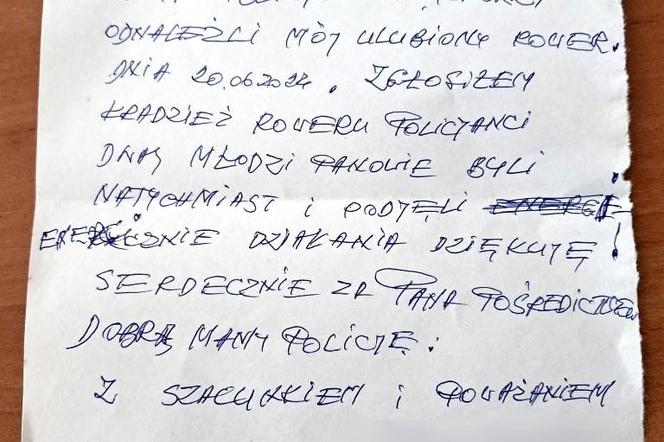 ODNALEŹLI MÓJ ULUBIONY ROWER.
DNIA 20.06.2024. ZGŁOSIŁEM
KRADZIEŻ ROWERU POLICJANCI
DWAJ MŁODZI PANOWIE BYLI
NATYCHMIAST I PODJĘLI
ENERGICZNIE DZIAŁANIA DZIĘKUJĘ!
SERDECZNIE ZA PANA POŚREDICTWEM
DOBRĄ MAMY POLICJĘ.
Z SZACUNKIEM I POWAŻANIEM